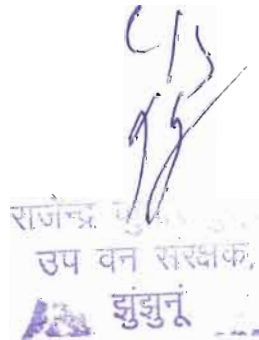 राजेन्द्र
उप वन संरक्षक,
झुंझुनूं